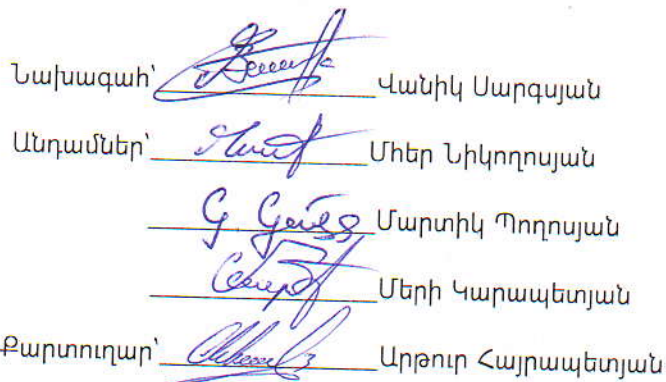 Նախագահ՝ Վանիկ Սարգսյան
Անդամներ՝ Մհեր Նիկողոսյան
Մարտիկ Պողոսյան
Մերի Կարապետյան
Քարտուղար՝ Արթուր Հայրապետյան